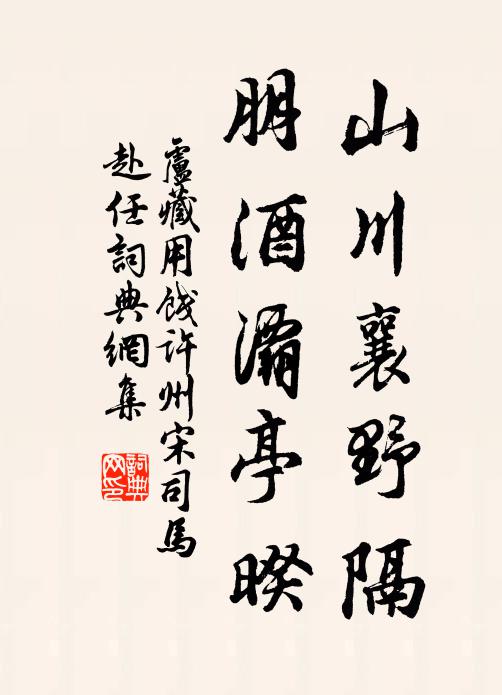 山川襄野隔
朋酒灞亭暌
盧藏用餞許州宋司馬
赴任詞典網集
詞典
网印